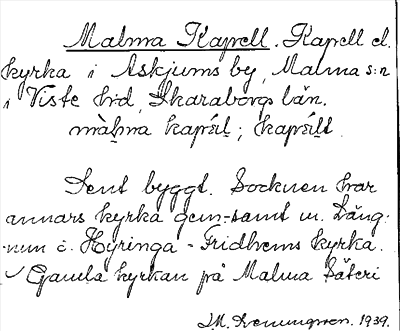 Malma Kapell. Kapell el.
kyrka i Askjums by, Malma s:n
i Viste h:d, Skaraborgs län.
kapell
Sent byggt. Socknen har
annars kyrka gem-samt m. Läng-
-num o. Hyringa - Fridhems kyrka.
Gamla kyrkan på Malma Säteri
1939.